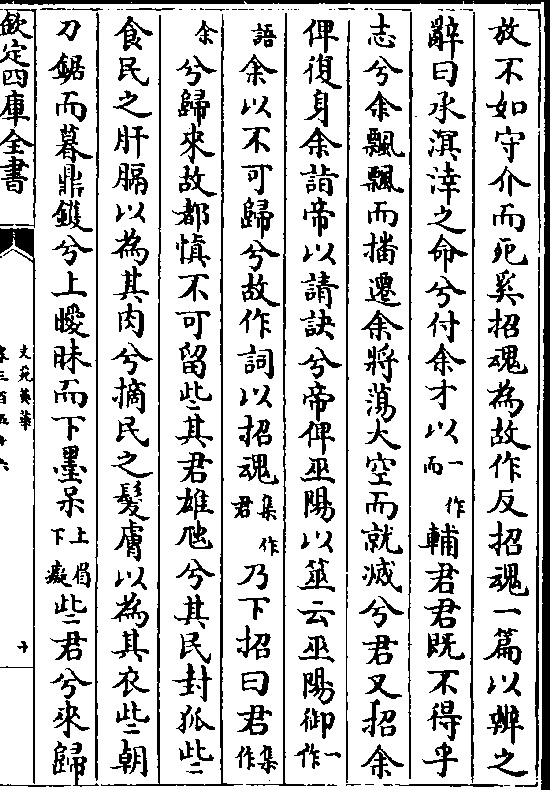 放不如守介而死奚招魂為故作反招魂一篇以辨之
辭曰承溟涬之命兮付余才以一作而輔君君既不得乎
志兮余飄飄而播遷余將蕩大空而就滅兮君又招余
俾復身余詣帝以請訣兮帝俾巫陽以筮云巫陽御一作
語余以不可歸兮故作詞以招魂集作君乃下招曰君集作
余兮歸來故都慎不可留些其君雄虺兮其民封狐些
食民之肝膈以為其肉兮摘民之髮膚以為其衣些朝
刀鋸而暮鼎鑊兮上曖昧而下墨杘上眉下癡些君兮來歸
欽定四庫全書
文苑英華
卷三百五十六
十